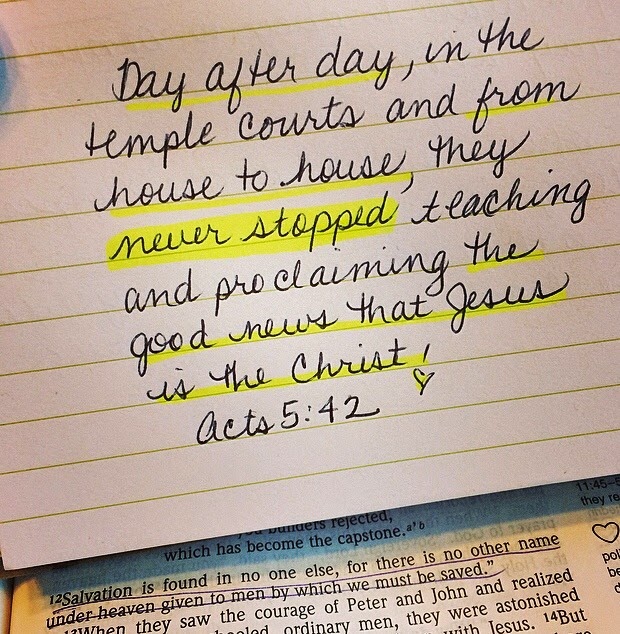 Day after day, in the
temple courts and from
house to house, they
never stopped teaching
and proclaiming the
good news that Jesus
is the Christ!
Acts 5:42
rejected,
which has become the capstone.a'b
12Salvation is found in no one else, for there is no other name
under heaven given to men by which we must be saved."
13When they saw the courage of Peter and John and realized
ordinary men, they were astonished
with Jesus. 14But
11:45-
they re